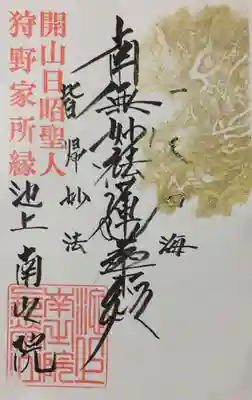 開山日昭聖人
狩野家所縁
一天四海
南無妙法蓮華経
皆帰妙法
池上
南之院